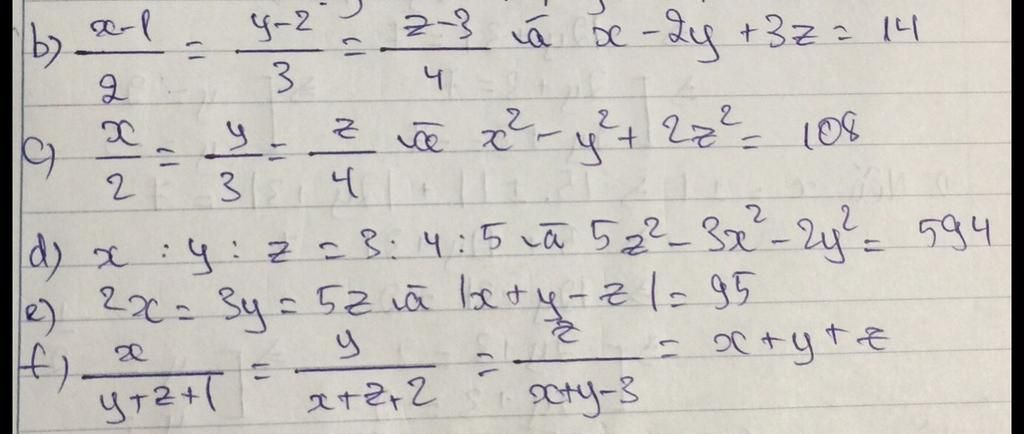 b) \frac{x-1}{2} = \frac{y-2}{3} = \frac{z-3}{4} và x - 2y + 3z = 14
c) \frac{x}{2} = \frac{y}{3} = \frac{z}{4} và x² - y² + 2z² = 108
d) x : y : z = 3 : 4 : 5 và 5z² - 3x² - 2y² = 594
e) 2x = 3y = 5z và |x + y - z| = 95
f) \frac{x}{y+z+1} = \frac{y}{x+z+2} = \frac{z}{x+y-3} = x + y + z